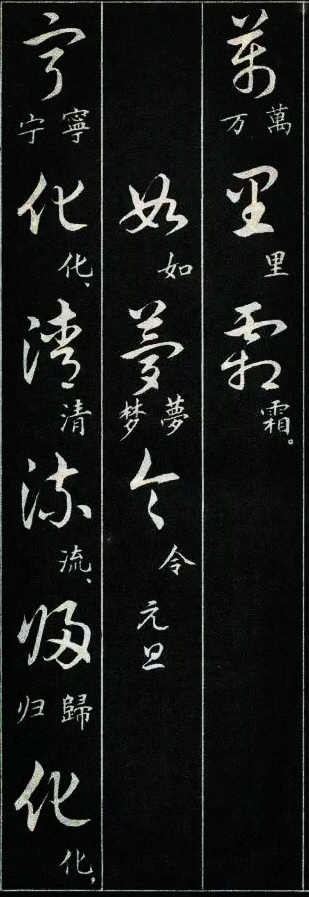 萬 萬 万 里 里 霜 霜。
如 如 夢 夢 梦 令 令 元旦
寧 寧 宁 化 化、 清 清 流 流、 歸 歸 归 化 化、